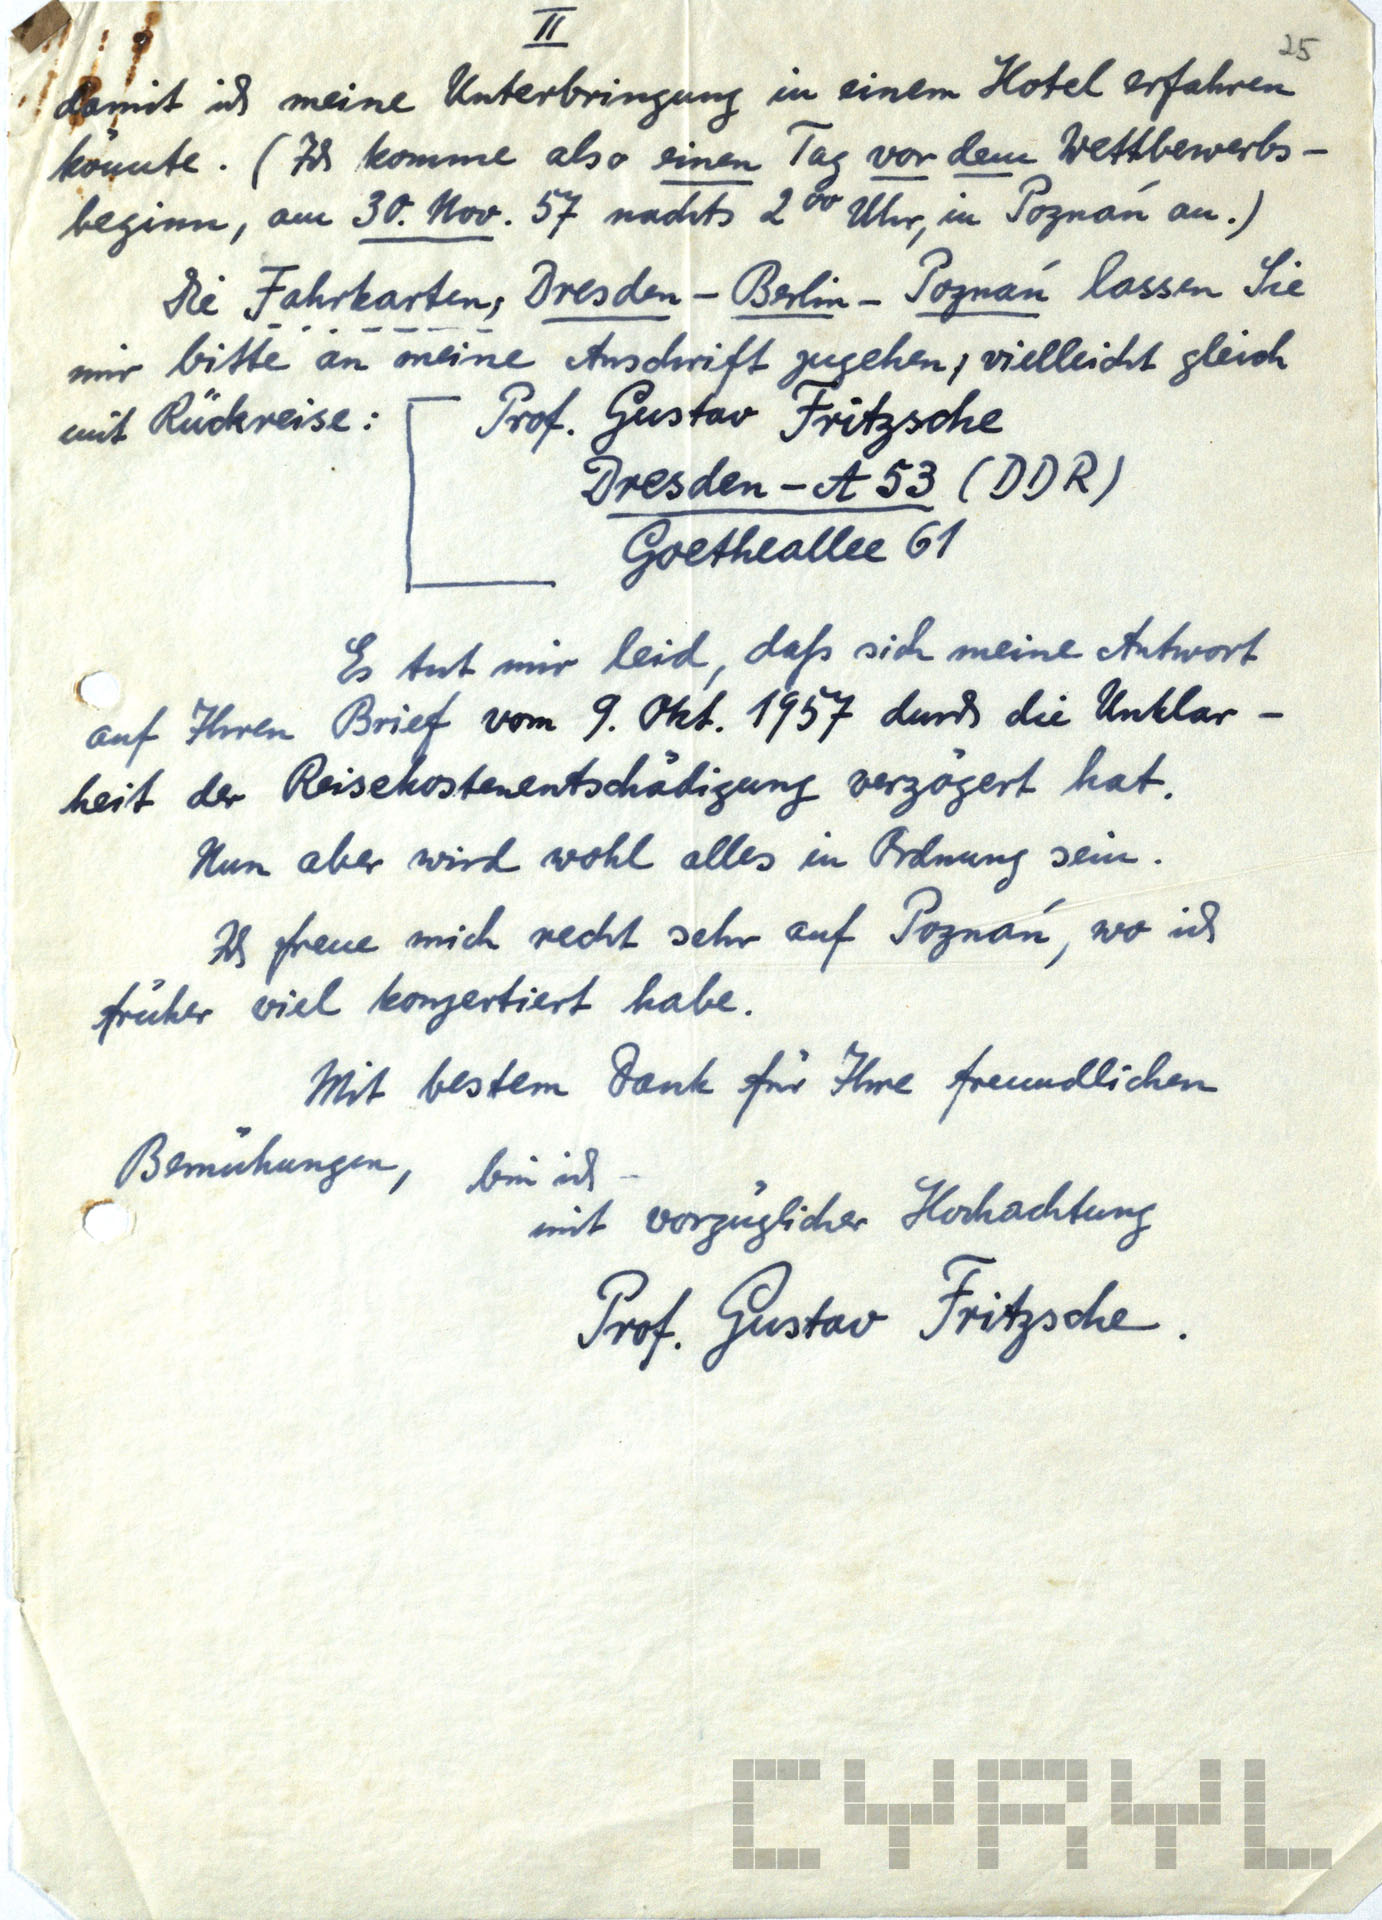 II
25
damit ich meine Unterbringung in einem Hotel erfahren
könnte. (Ich komme also einen Tag vor dem Wettbewerbs-
beginn, am 30. Nov. 57 nachts 2⁰⁰ Uhr, in Poznań an.)
Die Fahrkarten, Dresden - Berlin - Poznań lassen Sie
mir bitte an meine Anschrift zugehen, vielleicht gleich
mit Rückreise: Prof. Gustav Fritzsche
Dresden - A 53 (DDR)
Goetheallee 61
Es tut mir leid, daß sich meine Antwort
auf Ihren Brief vom 9. Okt. 1957 durch die Unklar-
heit der Reisekostenentschädigung verzögert hat.
Nun aber wird wohl alles in Ordnung sein.
Ich freue mich recht sehr auf Poznań, wo ich
früher viel konzertiert habe.
Mit bestem Dank für Ihre freundlichen
Bemühungen, bin ich -
mit vorzüglicher Hochachtung
Prof. Gustav Fritzsche.
CYRYL